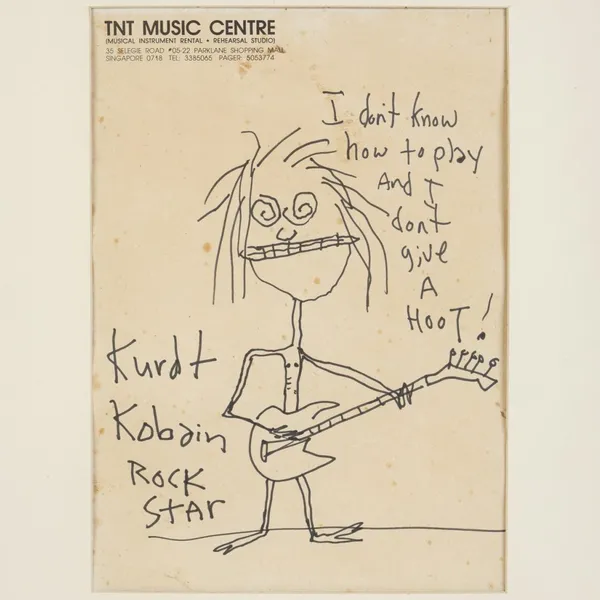 TNT MUSIC CENTRE
(MUSICAL INSTRUMENT RENTAL • REHEARSAL STUDIO)
35 SELEGIE ROAD #05-22 PARKLANE SHOPPING MALL
SINGAPORE 0718 TEL: 3385065 PAGER: 5053774
I don't know
how to play
And I
dont
give
A
HOOT!
Kurdt
Kobain
ROCK
STAr